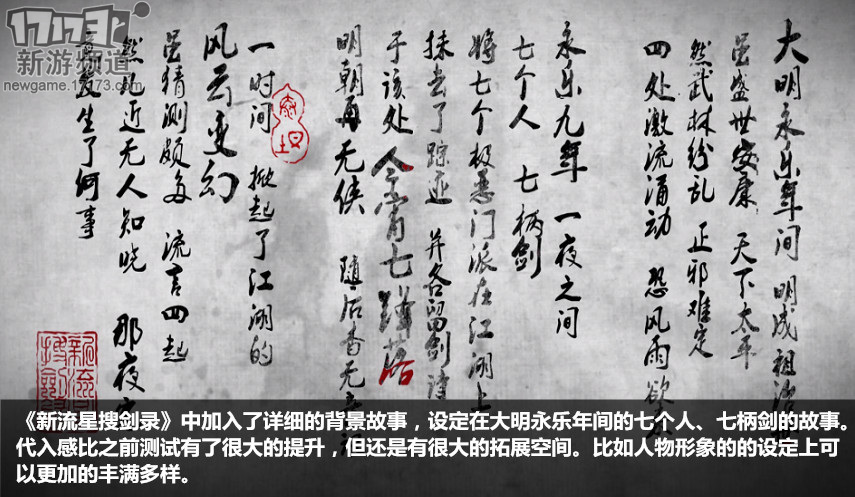 17173.com
新游频道
newgame.17173.com
大明永乐年间 明成祖治
虽盛世安康 天下太平
然武林纷乱 正邪难定
四处激流涌动 恐风雨欲
永乐九年 一夜之间
七个人 七柄剑
将七个极恶门派在江湖上
抹去了踪迹 并各留剑
于该处
明朝再无侠 随后杳无
一时间 掀起了江湖的
风云变幻
虽猜测颇多 流言四起
然几近无人知晓 那夜
发生了何事
《新流星搜剑录》中加入了详细的背景故事，设定在大明永乐年间的七个人、七柄剑的故事。
代入感比之前测试有了很大的提升，但还是有很大的拓展空间。比如人物形象的的设定上可
以更加的丰满多样。